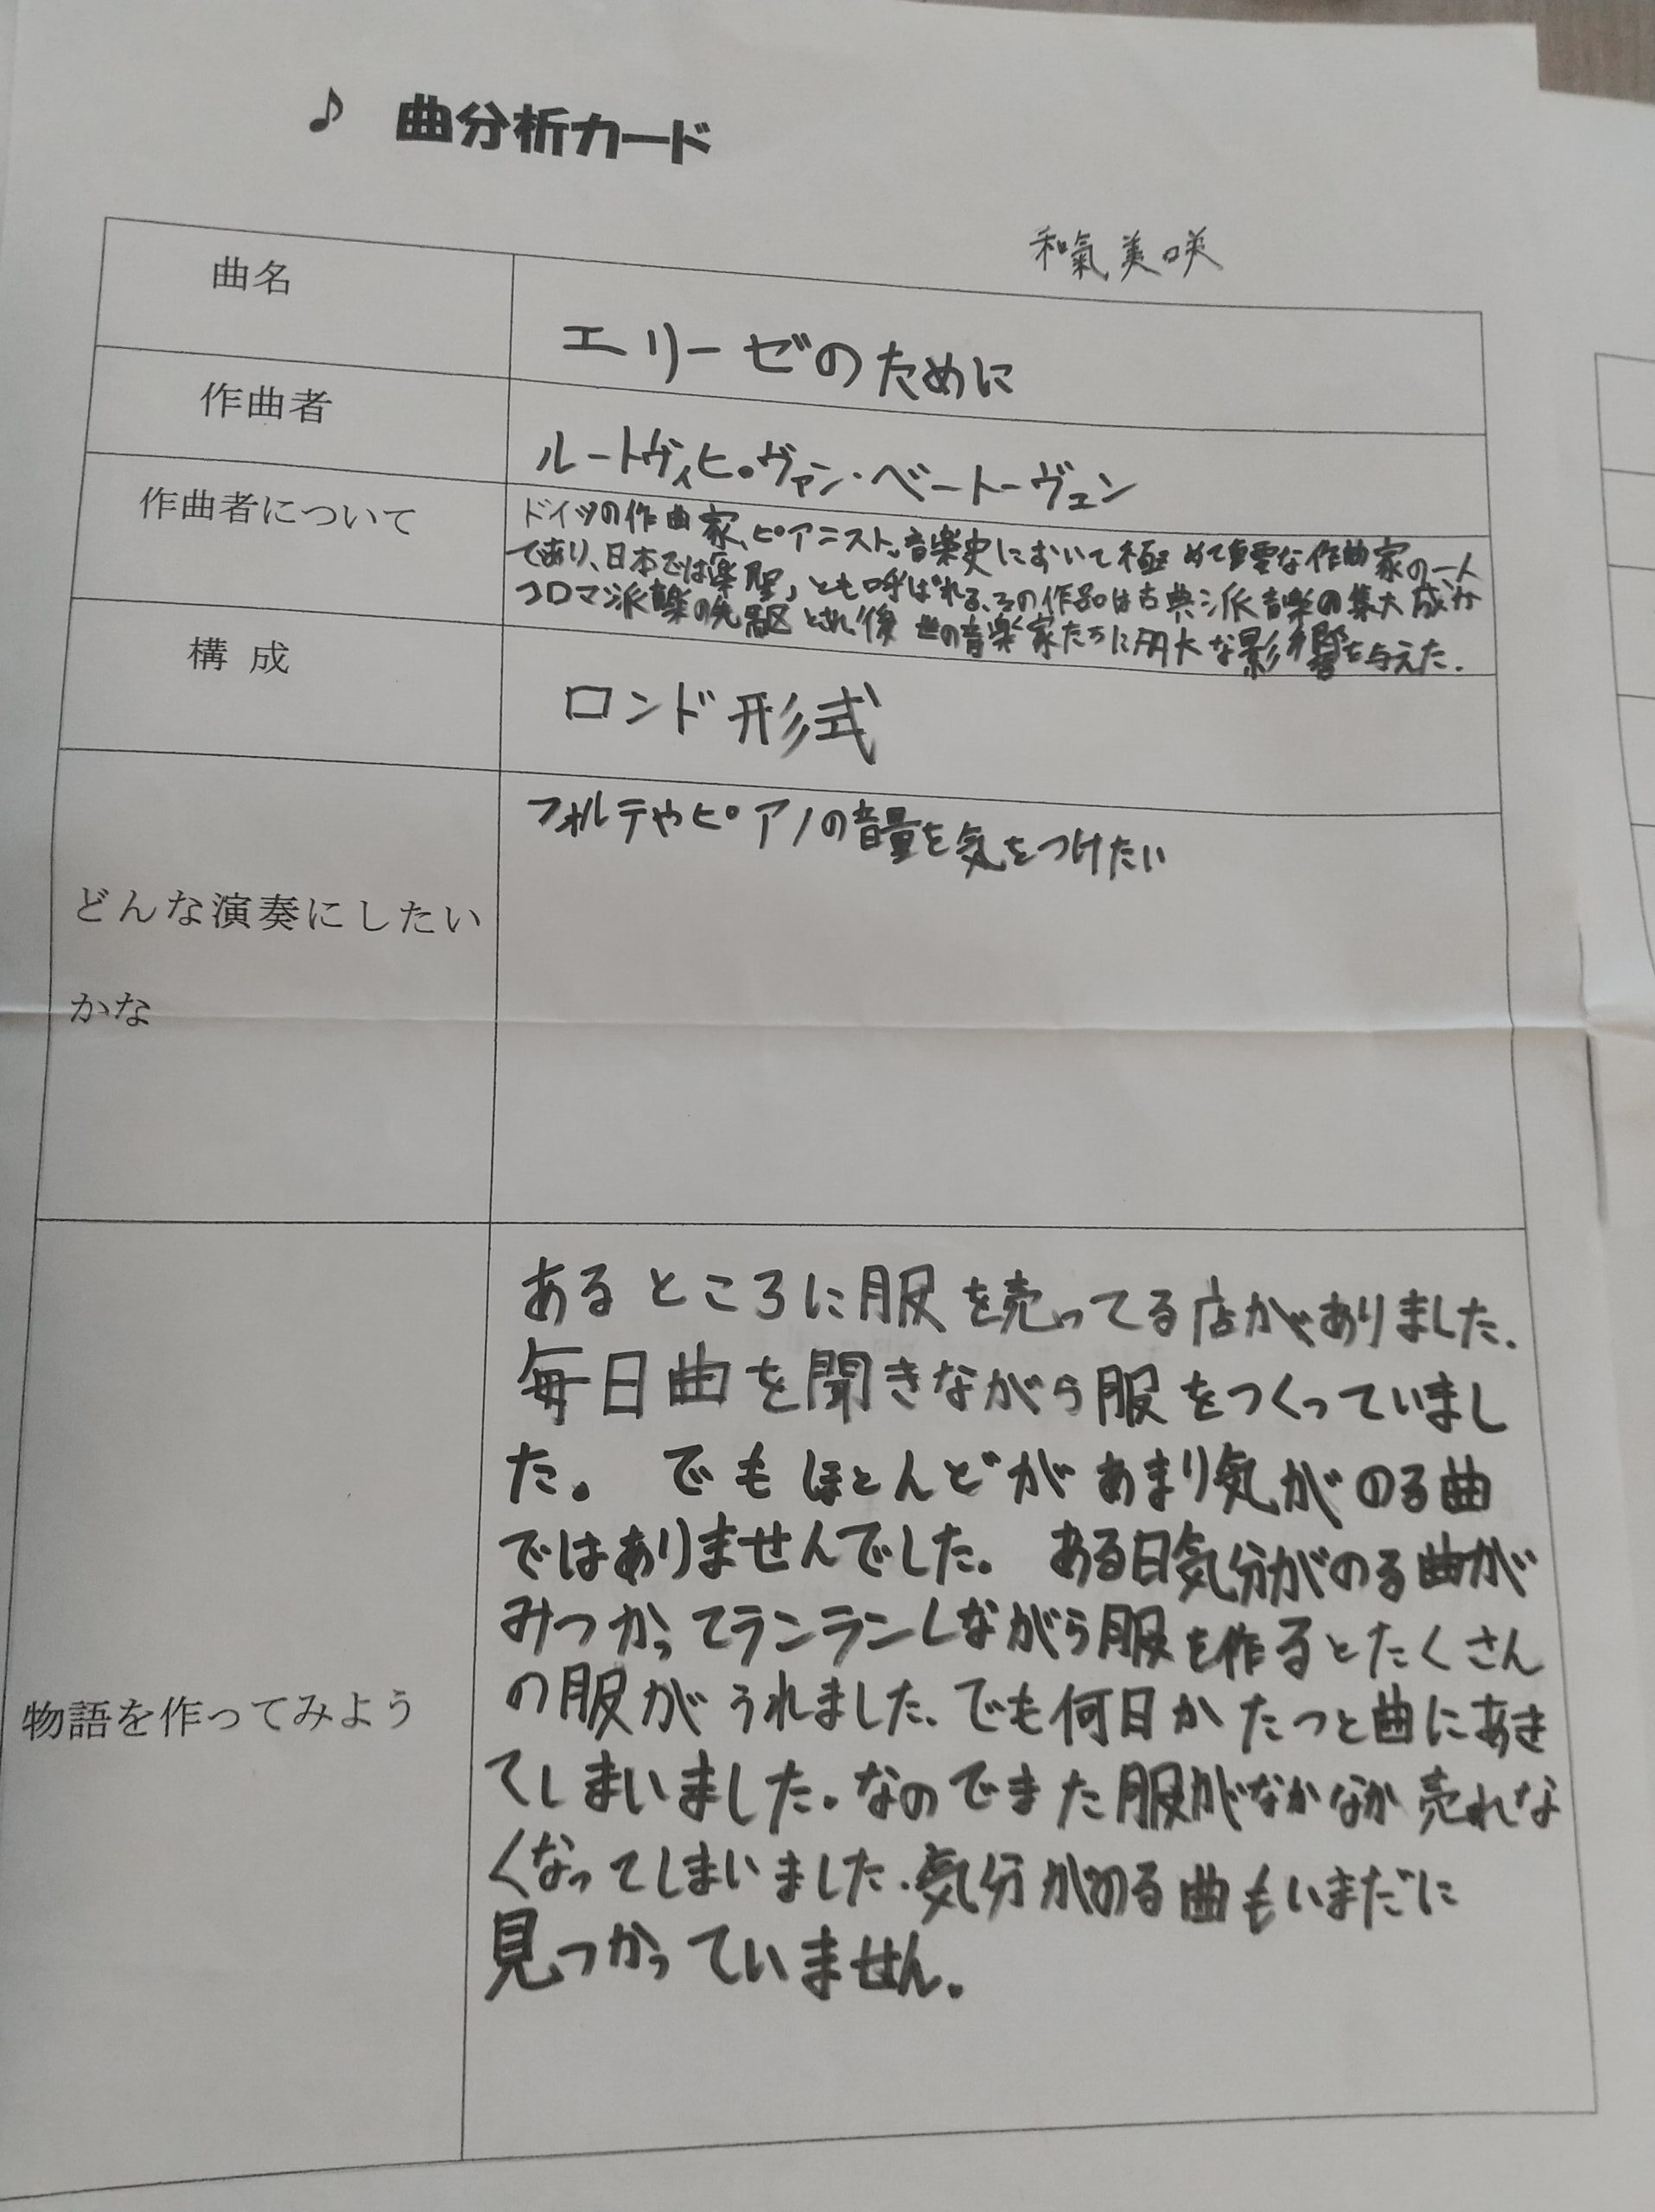 ♪ 曲分析カード
和氣美咲
曲名
エリーゼのために
作曲者
ルートヴィヒ・ヴァン・ベートーヴェン
作曲者について
ドイツの作曲家、ピアニスト。音楽史において極めて重要な作曲家の一人
であり、日本では「楽聖」とも呼ばれる、その作品は古典派音楽の集大成かつ
ロマン派音楽の先駆とされ、後世の音楽家たちに多大な影響を与えた.
構成
ロンド形式
どんな演奏にしたい
かな
フォルテやピアノの音量を気をつけたい
物語を作ってみよう
あるところに服を売ってる店がありました.
毎日曲を聞きながら服をつくっていまし
た。でもほとんどがあまり気がのる曲
ではありませんでした。ある日気分がのる曲が
みつかってランランしながら服を作るとたくさん
の服がうれました、でも何日かたつと曲にあき
てしまいました。なのでまた服がなかなか売れな
くなってしまいました.気分がのる曲もいまだに
見つかっていません。